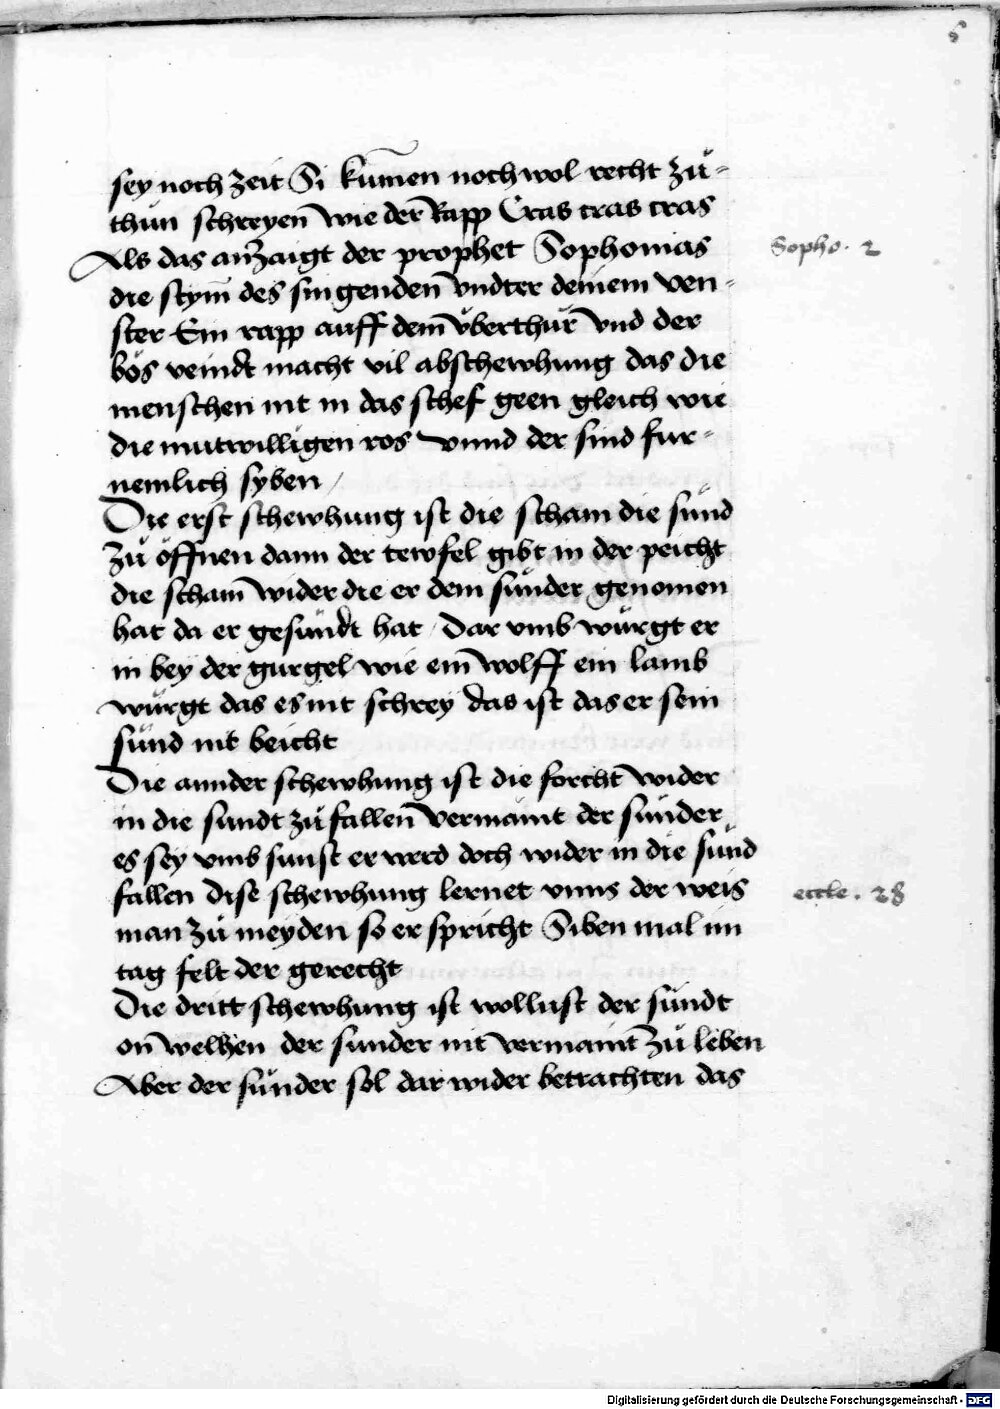 5
sey noch zeit Si kum̄en noch wol recht zů-
thůn schreyen wie der Rapp Cras cras cras
Als das anzaigt der prophet Sophonias
Sopho. 2
die stym̄ des singenden vndter deinem ven-
ster Ein rapp auff dem v̈berthür vnd der
bös veindt macht vil abschewhung das die
menschen nit in das schef geen gleich wie
die mutwilligen ros vnnd der sind fur-
nemlich syben /
Die erst schewhung ist die scham die sünd
zů öffnen dann der tewfel gibt in der peicht
die scham wider die er dem sünder genomen
hat da er gesündt hat / Dar vmb würgt er
in bey der gurgel wie ein wolff ein lamb
würgt das es nit schrey das ist das er sein
sünd nit beicht
Die annder schewhung ist die forcht wider
in die sundt zů fallen vermaint der sünder
es sey vmb sunst er werd doch wider in die sünd
fallen dise schewhung lernet vnns der weis
eccle. 28
man zů meyden so er spricht Siben mal im
tag felt der gerecht
Die dritt schewhung ist wollust der sündt
on welhen der sunder nit vermaint zů leben
Aber der sünder sol dar wider betrachten das
Digitalisierung gefördert durch die Deutsche Forschungsgemeinschaft - DFG